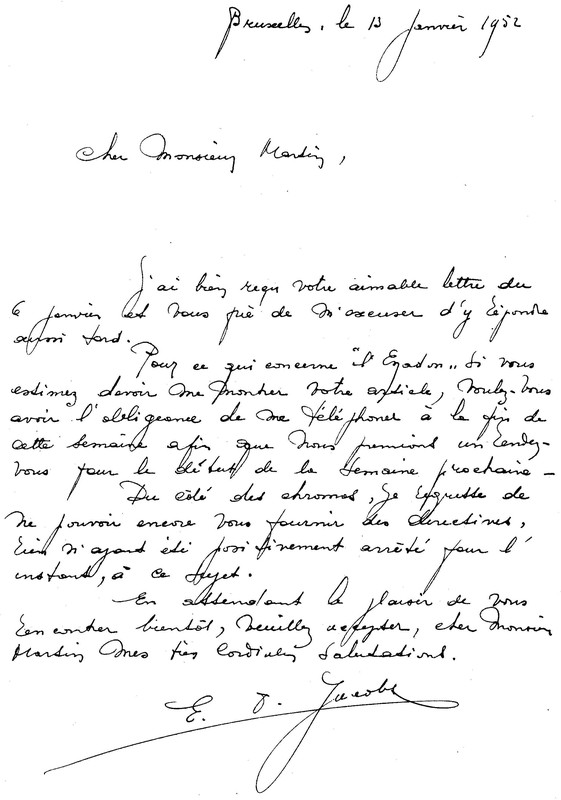 Bruxelles, le 13 Janvier 1952
Cher Monsieur Martin,
J'ai bien reçu votre aimable lettre du
6 janvier et vous prie de m'excuser d'y répondre
aussi tard.
Pour ce qui concerne "l'Espadon" si vous
estimez devoir me montrer votre article, voulez-vous
avoir l'obligeance de me téléphoner à la fin de
cette semaine afin que nous prenions un rendez-
vous pour le début de la semaine prochaine -
Du côté des chromos, je regrette de
ne pouvoir encore vous fournir des directives,
rien n'ayant été positivement arrêté pour l'
instant, à ce sujet.
En attendant le plaisir de vous
rencontrer bientôt, veuillez accepter, cher Monsieur
Martin mes très cordiales salutations.
E. P. Jacobs